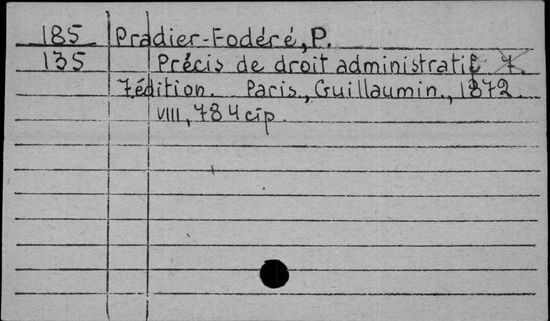 185 Pradier-Fodéré, P.
135 Précis de droit administratif. 7.
7édition. Paris, Guillaumin., 1872.
VIII, 784 cip.